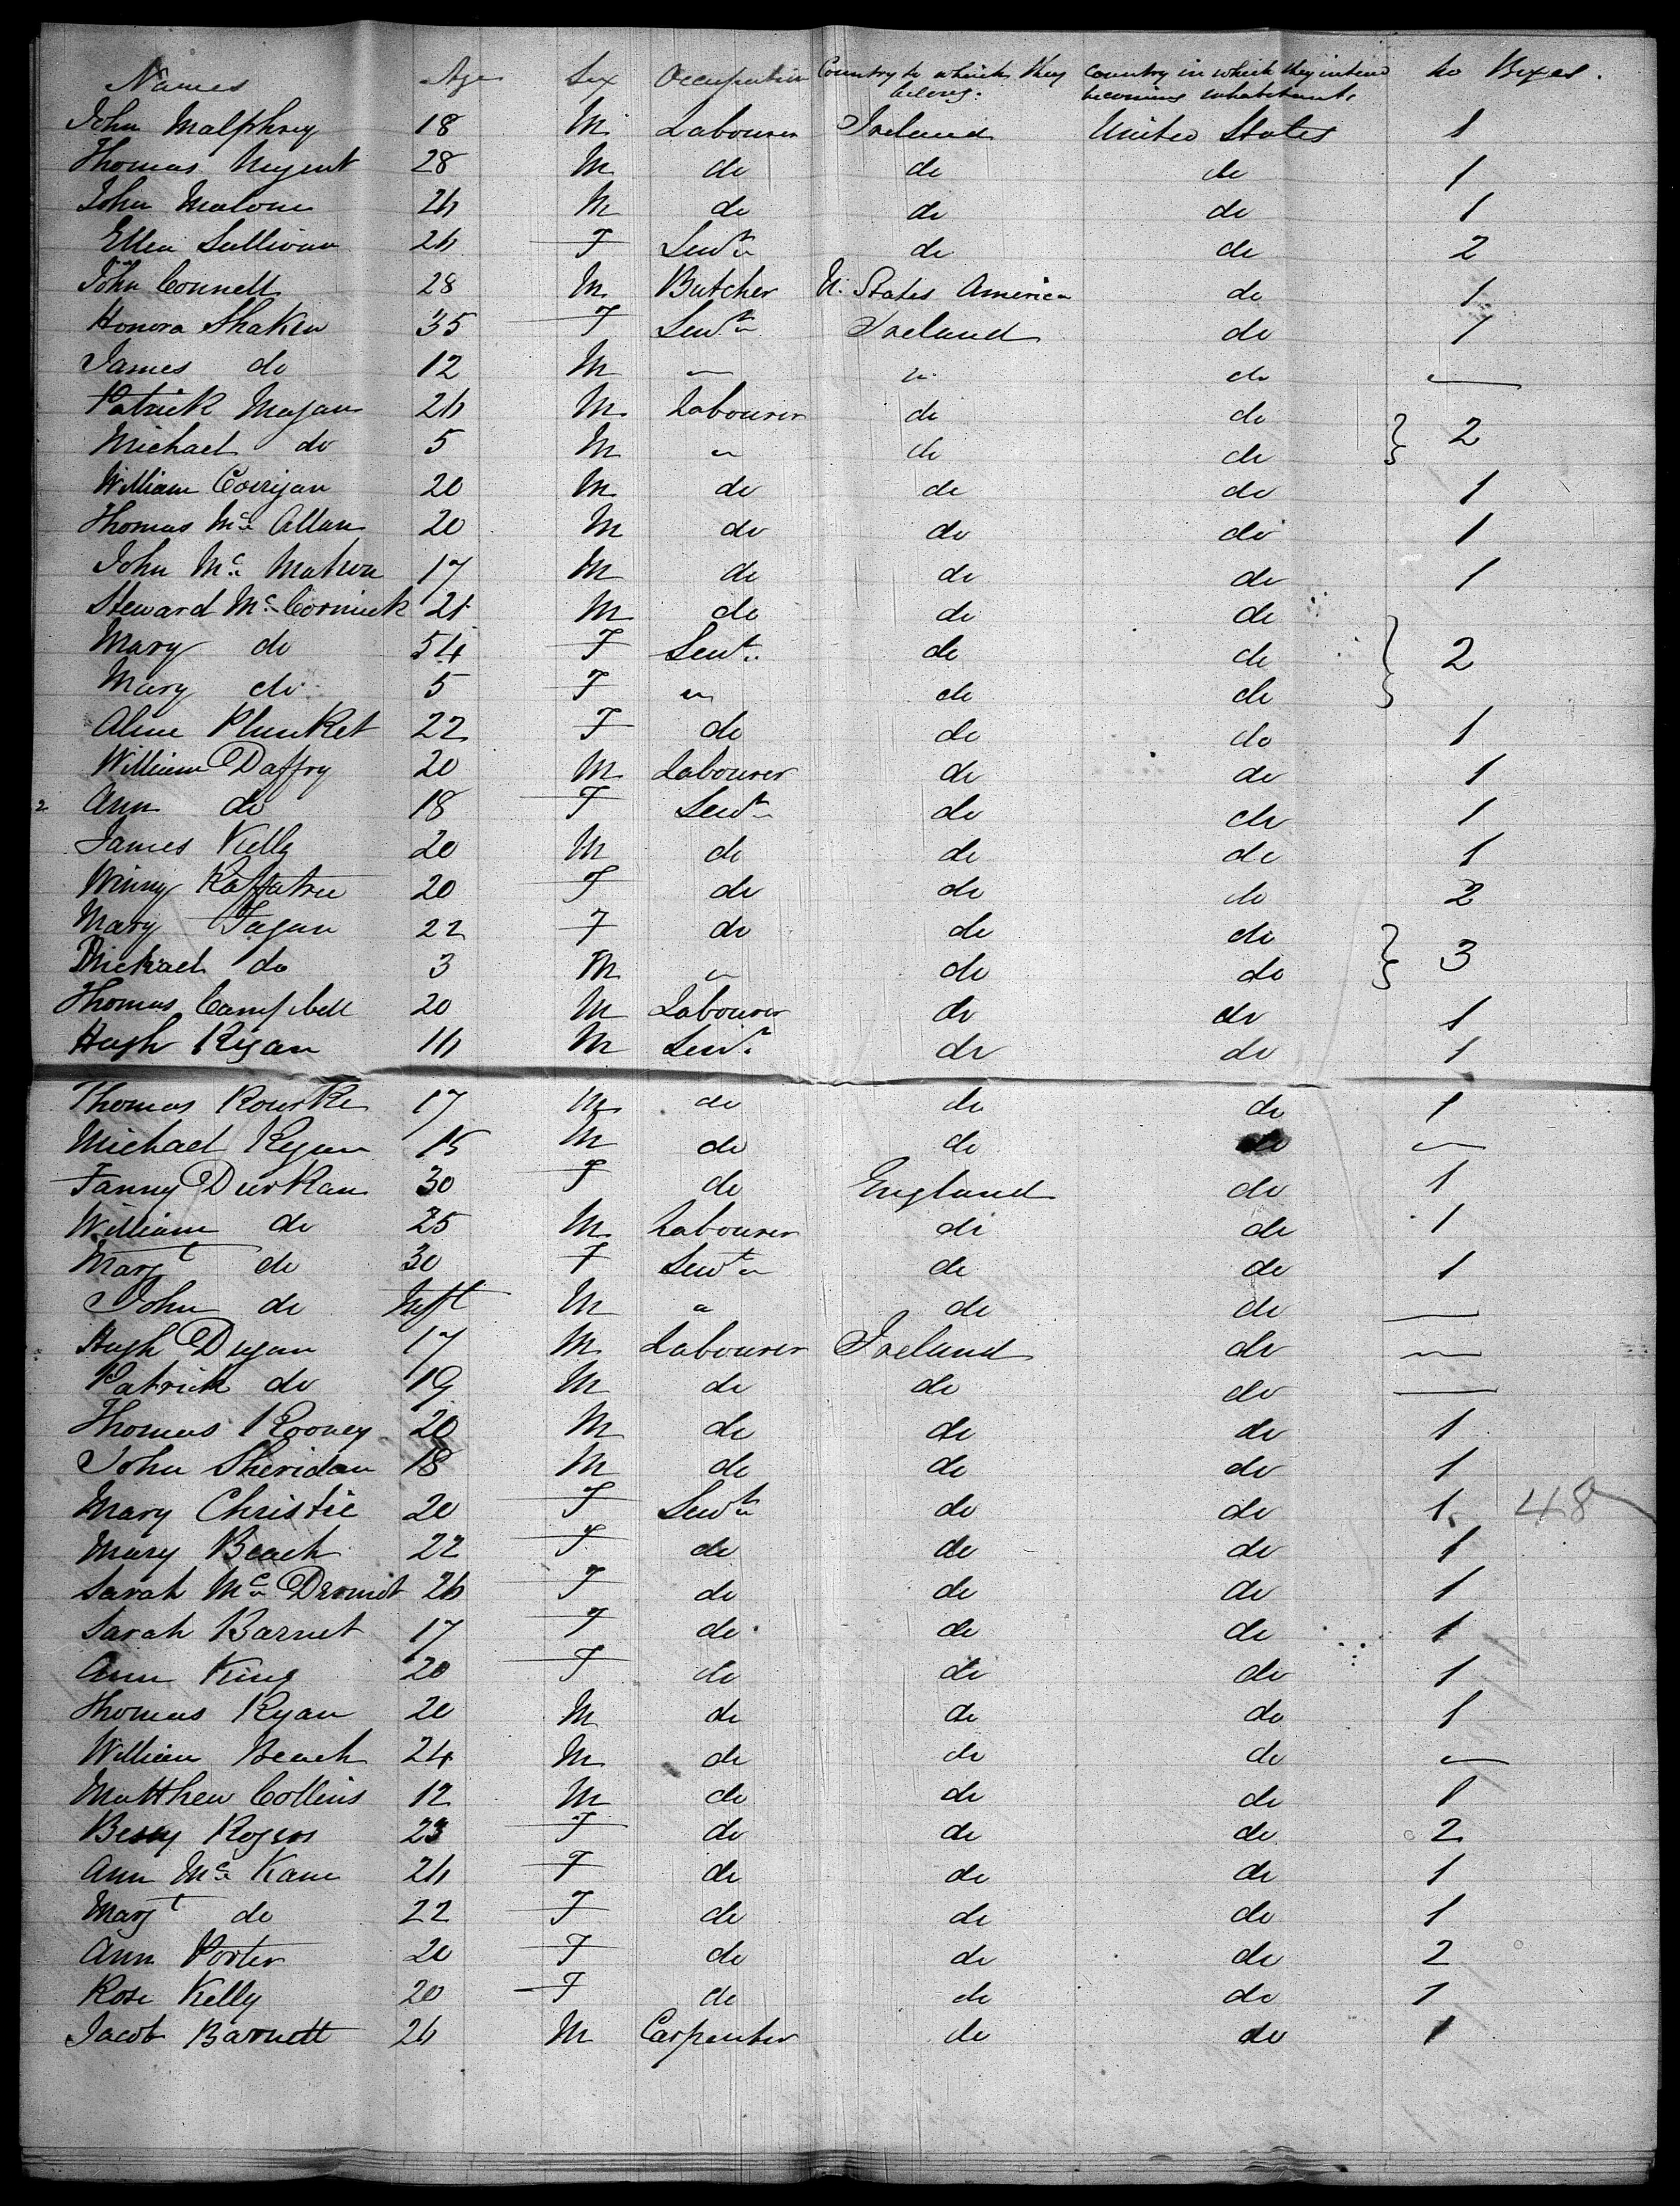 Names Age Sex Occupation Country to which they belong. Country in which they intend becoming inhabitants No Boxes.
John Malphrey 18 M Labourer Ireland United States 1
Thomas Nugent 28 M do do do 1
John Malone 26 M do do do 1
Ellen Sullivan 26 F Servt do do 2
John Connell 28 M Butcher U. States America do 1
Honora Shaken 35 F Servt Ireland do 1
James do 12 M " " do —
Patrick Magan 26 M Labourer do do } 2
Michael do 5 M " do do
William Corrigan 20 M do do do 1
Thomas Mc Allan 20 M do do do 1
John Mc Mahon 17 M do do do 1
Steward Mc Cormick 21 M do do do } 2
Mary do 54 F Servt do do
Mary do 5 F " do do
Plunket 22 F do do do 1
William Daffry 20 M Labourer do do 1
2 Ann do 18 F Servt do do 1
James Kelly 20 M do do do 1
Winny 20 F do do do 2
Mary Fagan 22 F do do do } 3
Michael do 3 M " do do
Thomas Campbell 20 M Labourer do do 1
Hugh Regan 16 M Servt do do 1
Thomas Rourke 17 M do do do 1
Michael Regan 15 M do do do —
Fanny Durkan 30 F do England do 1
William do 25 M Labourer do do 1
Margt do 30 F Servt do do 1
John do Inft M " do do —
Hugh Dugan 17 M Labourer Ireland do —
Patrick do 19 M do do do —
Thomas Rooney 20 M do do do 1
John Sheridan 18 M do do do 1
Mary Christie 20 F Servt do do 1 48
Mary Beach 22 F do do do 1
Sarah Mc Dermot 26 F do do do 1
Sarah Barnet 17 F do do do 1
Ann King 20 F do do do 1
Thomas Ryan 20 M do do do 1
William Beach 24 M do do do —
Matthew Collins 12 M do do do 1
Bessy Rogers 23 F do do do 2
Ann Mc Kane 26 F do do do 1
Margt do 22 F do do do 1
Ann Porter 20 F do do do 2
Rose Kelly 20 F do do do 1
Jacob Barnett 26 M Carpenter do do 1